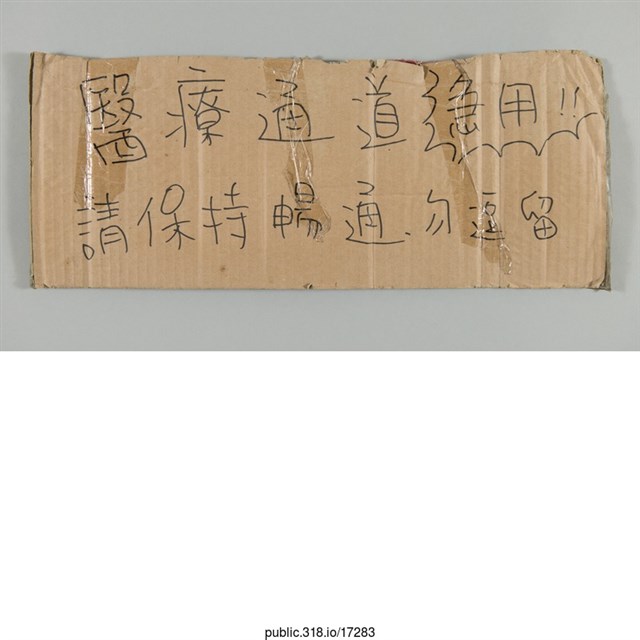 醫療通道急用!!
請保持暢通.勿逗留
public.318.io/17283